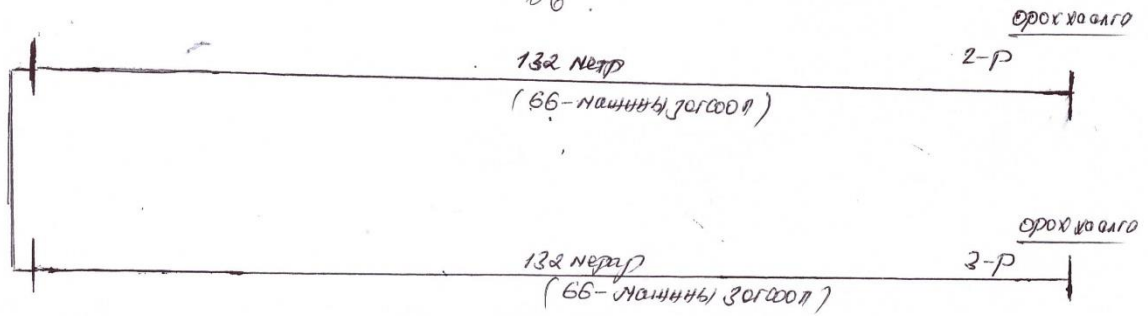 орох хаалга
132 метр
2-р
(66-машины зогсоол)
орох хаалга
132 метр
3-р
(66-машины зогсоол)